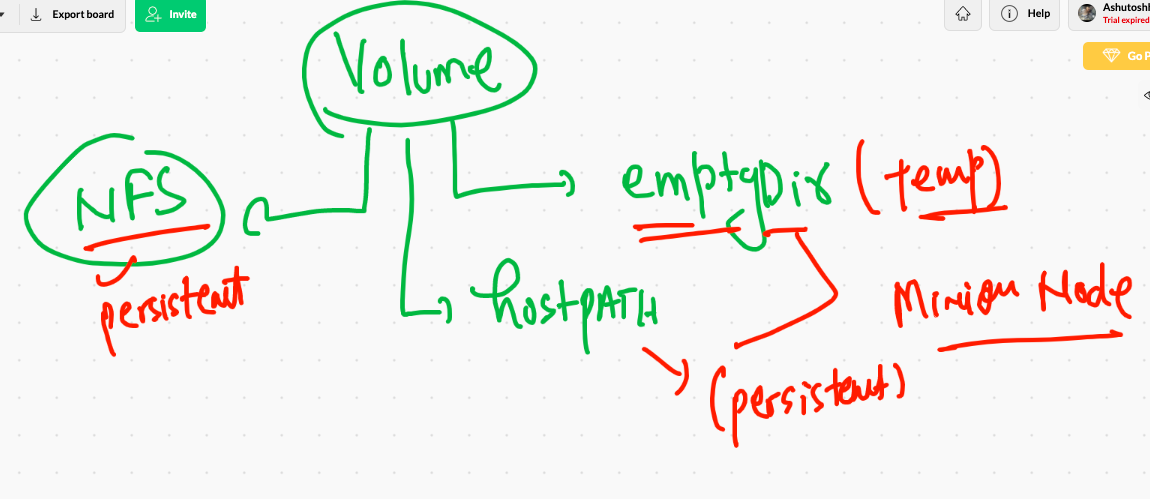 Export board
Invite
Help
Ashutosh
Trial expired
Go P
Volume
NFS
persistent
emptyDir (temp)
hostpATH
Minion Node
(persistent)